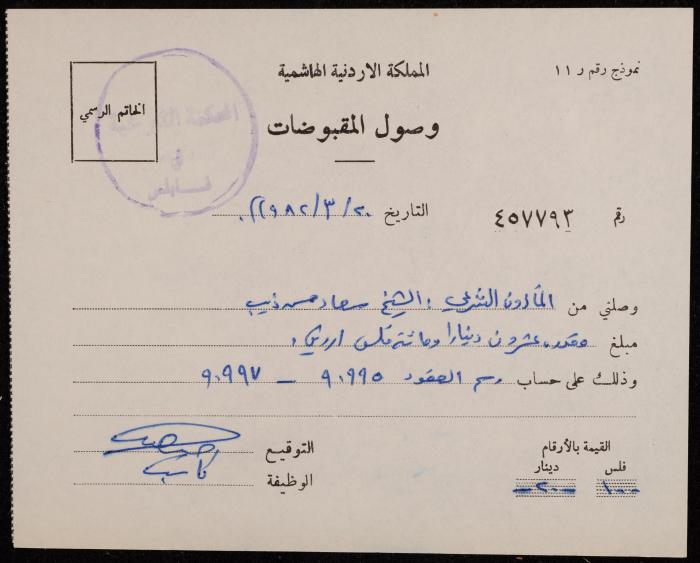 نموذج رقم ر ١١
المملكة الاردنية الهاشمية
وصول المقبوضات
الخاتم الرسمي
المحكمة الشرعية
في
نابلس
رقم ٤٥٧٧٩٣
التاريخ ٢٠/٣/١٩٨٢
وصلني من المأذون الشرعي : الشيخ سعاد حسن ذيب
مبلغ وقدره عشرون دينارا ومائة فلس اردني
وذلك على حساب رسم العقود ٩٠٩٩٥ – ٩٠٩٩٧
القيمة بالأرقام
فلس دينار
١٠٠ -٢٠-
التوقيع
الوظيفة كاتب